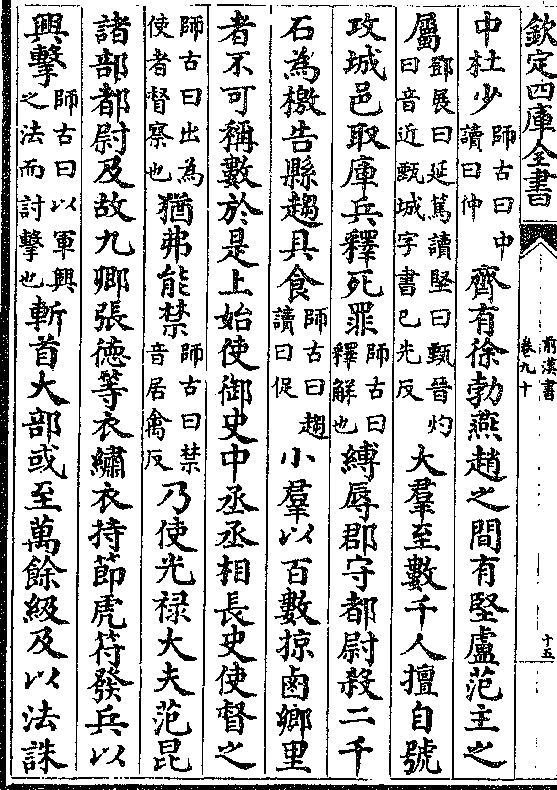 欽定四庫全書
前漢書
卷九十
十五
中杜少師古曰中讀曰仲齊有徐勃燕趙之間有堅盧范主之
屬鄧展曰延篤讀堅曰甄晉灼曰音近甄城字書已先反大羣至數千人擅自號
攻城邑取庫兵釋死罪師古曰釋解也縛辱郡守都尉殺二千
石為檄告縣趨具食師古曰趨讀曰促小羣以百數掠鹵鄉里
者不可稱數於是上始使御史中丞丞相長史使督之
師古曰出為使者督察也猶弗能禁師古曰禁音居禽反乃使光禄大夫范昆
諸部都尉及故九卿張徳等衣繡衣持節虎符發兵以
興擊師古曰以軍興之法而討擊也斬首大部或至萬餘級及以法誅